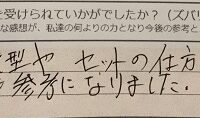 を受けられていかがでしたか？（ズバリ
な感想が、私達の何よりの力となり今後の参考と
型や セットの仕方
参考になりました.